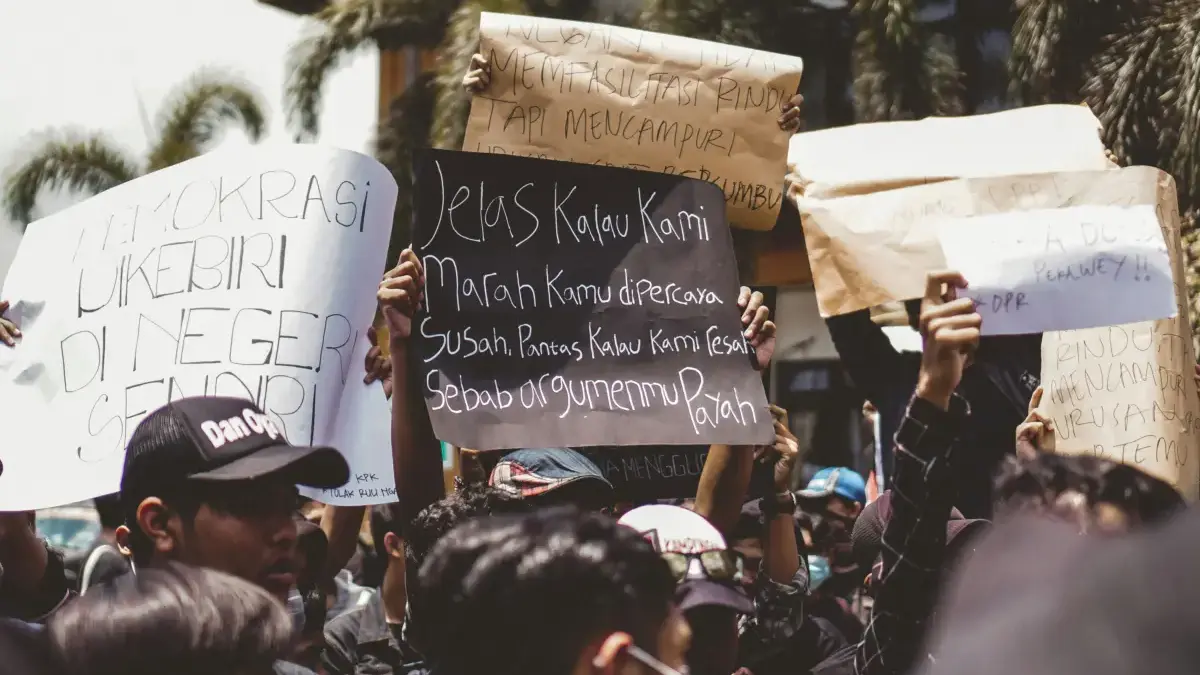 DEMOKRASI
DIKEBIRI
DI NEGERI
SENDIRI
KPK
TOLAK RUU
MEMFASILITASI RINDU
TAPI MENCAMPURI
Jelas Kalau Kami
Marah Kamu dipercaya
Susah. Pantas Kalau Kami resah
Sebab argumenmu Payah
PERAWEY!!
DPR
RINDU
MENCAMPURI
URUSAN
BERTEMU
Dan